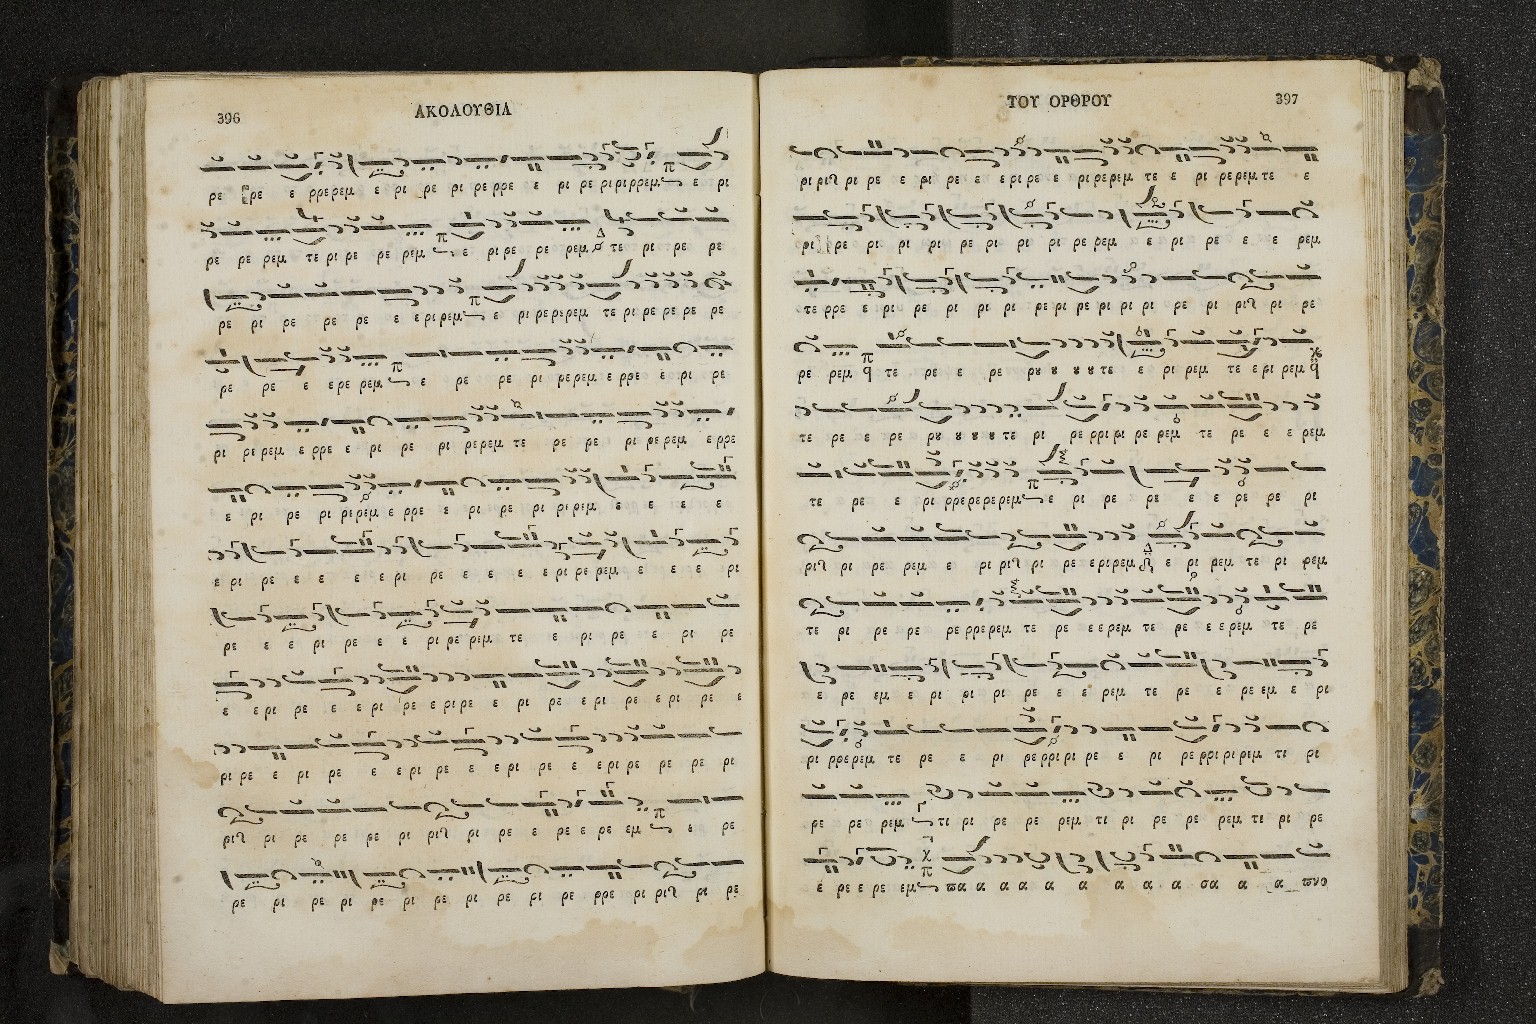 396
ΑΚΟΛΟΥΘΙΑ
ρε ρε ε ρρερεμ ε ρι ρε ρι ρε ρρε ε ρι ρε ριριρρεμ ε ρι
ρε ρε ρεμ τε ρι ρε ρε ρεμ ε ρι ρε ρε ρεμ τε ρι ρε ρε
ρε ρι ρε ρε ρε ε ε ρι ρεμ ε ρι ρε ρι ρεμ τε ρι ρε ρε ρε ρε
ρε ρε ε ερε ρεμ ε ρε ρε ρι ρερεμ ε ρρε ε ρι ρε
ρι ρι ρεμ ε ρρε ε ρι ρε ρι ρερεμ τε ρε ρε ρι ρε ρεμ ε ρρε
ε ρι ρε ρι ρερεμ ε ρρε ε ρι ρε ρι ριρεμ ε ε ε ε
ε ρι ρε ε ε ε ε ρι ρε ε ε ε ε ρι ρε ρεμ ε ε ε ρι
ρε ε ε ρι ρε ε ε ρι ρε ρεμ τε ε ρι ρε ε ρι ρε
ε ε ρι ρε ε ε ρι ρε ε ρι ρε ε ρι ρε ε ρι ρε ε ρι ρε ε
ρι ρε ε ρι ρε ε ε ρι ρε ε ε ρι ρε ε ε ρι ρε ρε ρε ρι
ρις ρι ρε ρε ρε ρι ρις ρι ρε ε ρε ε ρε εμ ε ρε
ρε ρι ρε ρι ρε ρι ρε ρι ρε ρι ρε ρρε ρι ρις ρι ρε
ΤΟΥ ΟΡΘΡΟΥ
397
ρι ρις ρι ρε ε ρι ρε ε ε ρι ρε ε ρι ρε ρεμ τε ε ρι ρε ρεμ τε ε
ρι ρε ρι ρι ρι ρε ρι ρι ρι ρε ρεμ ε ρι ρε ε ε ρεμ
τε ρρε ε ρι ρε ρι ρι ρε ρι ρε ρι ρι ρι ρε ρι ρις ρι ρε
ρε ρεμ τε ρε ε ρε ρȣ ȣ ȣ ȣ τε ε ρι ρεμ τε ε ρι ρεμ
τε ρε ε ρε ρȣ ȣ ȣ ȣ τε ρι ρε ρρι ρι ρε ρεμ τε ρε ε ε ρεμ
τε ρε ε ρι ρρε ρε ρε ρεμ ε ρι ρε ρε ε ε ρε ρε ρι
ρις ρι ρε ρεμ ε ρι ρις ρι ρε ε ρι ρεμ ε ρι ρεμ τε ρι ρεμ
τε ρι ρε ρε ρε ρρε ρεμ τε ρε ε ε ρεμ τε ρε ε ε ρεμ τε ρε
ε ρε εμ ε ρι ρι ρι ρε ε ε ρεμ τε ρε ε ρε εμ ε ρι
ρι ρρε ρεμ τε ρε ε ρι ρε ρρι ρι ρε ε ρι ρε ρρι ρι ρεμ τι ρι
ρε ρε ρεμ τι ρι ρε ρε ρεμ τι ρι ρε ρε ρεμ τι ρι ρε
ε ρε ε ρε εμ πα α α α α α α α α σα α α πνο